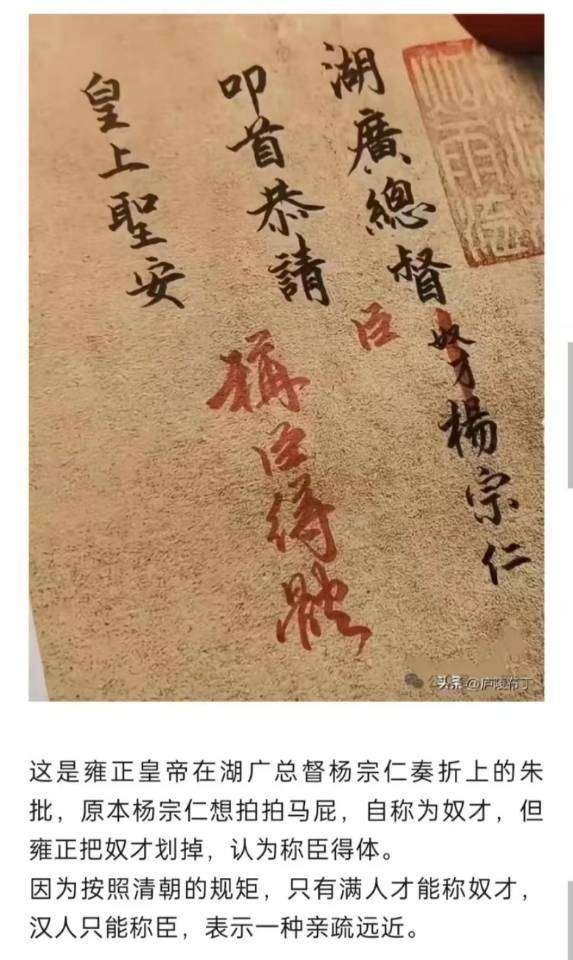 湖廣總督奴才楊宗仁
臣
叩首恭請
稱臣得體
皇上聖安
头条@庐陵布丁
这是雍正皇帝在湖广总督杨宗仁奏折上的朱
批，原本杨宗仁想拍拍马屁，自称为奴才，但
雍正把奴才划掉，认为称臣得体。
因为按照清朝的规矩，只有满人才能称奴才，
汉人只能称臣，表示一种亲疏远近。